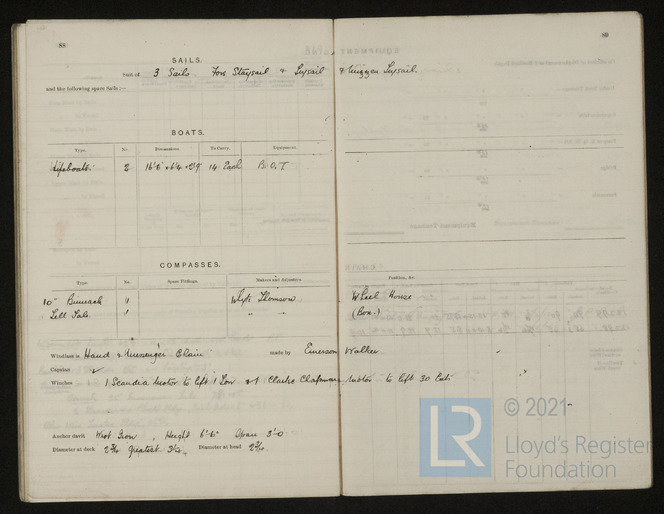 88
SAILS.
Suit of 3 Sails Fore Staysail & Trysail
and the following spare Sails :—
BOATS.
Type. No. Dimensions To Carry. Equipment.
Lifeboats 2 14 Each B.O.T
COMPASSES.
Type No. Spare Fittings. Makers and Adjusters
10" Binnacle 1 Whyte Thomson
Tell Tale 1 " "
Windlass is Hand & Messenger Chain made by Emerson
Capstan
Winches 1 Scandia Motor to lift 1 Ton & 1 Clarke Chapman
Anchor davit Wrot Iron , Height 6'-6" Span 3'-0
Diameter at deck 2¾ greatest Diameter at head 2¾
89
& Mizzen Trysail.
Position, &c.
Wheel House
(Box.)
Walker
Motor to lift 30 Cwts
© 2021
LR
Lloyd's Register
Foundation